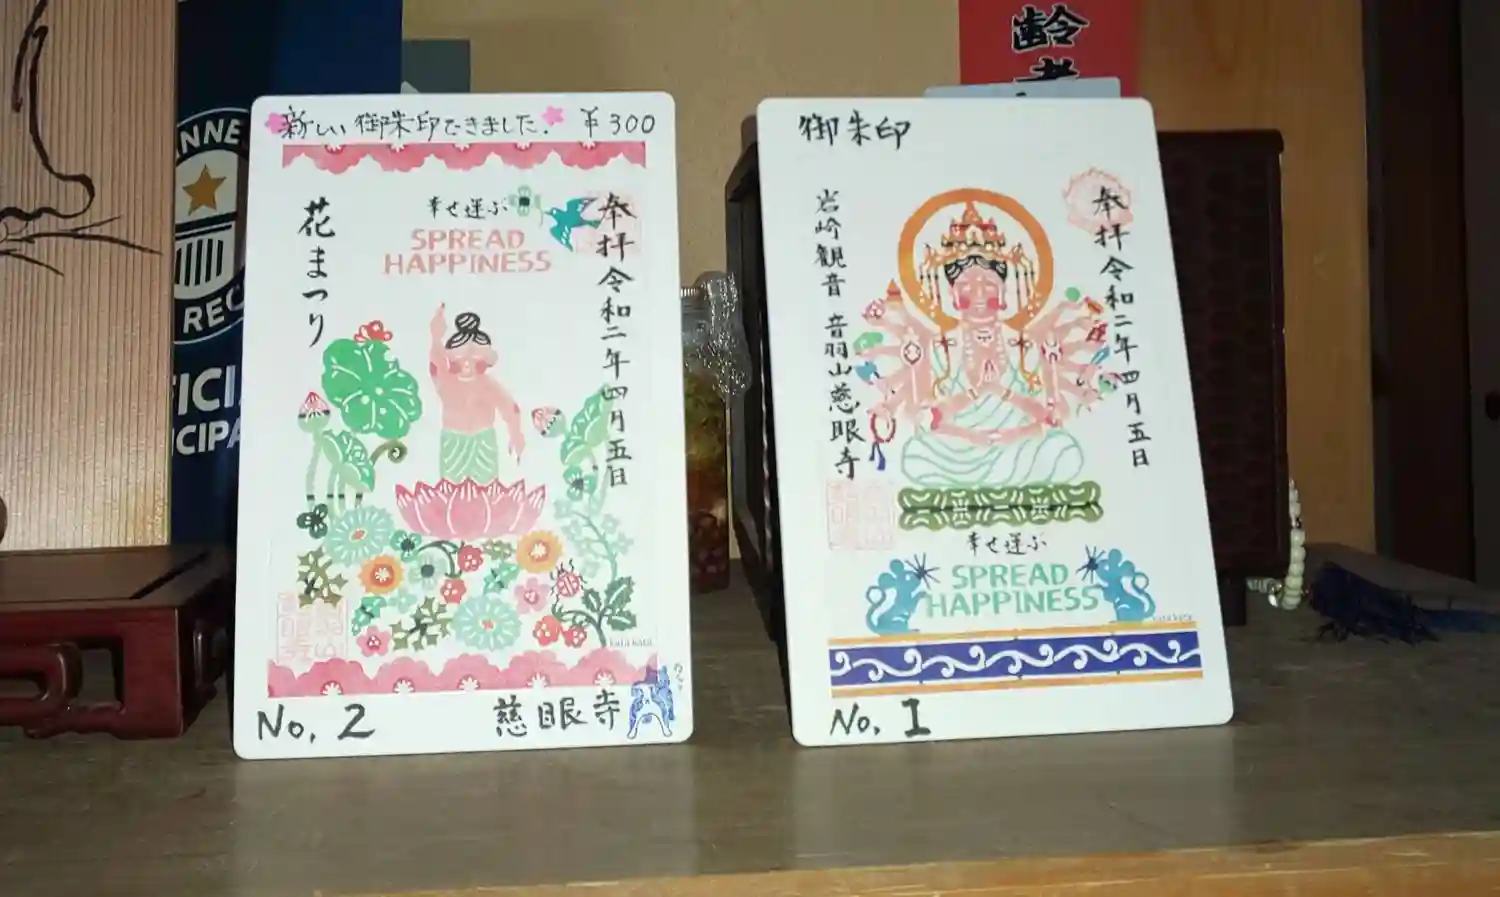 新しい御朱印できました. ￥300
幸せ運ぶ
SPREAD
HAPPINESS
奉拝 令和二年四月五日
花まつり
kata kata
No. 2
慈眼寺
御朱印
奉拝 令和二年四月五日
岩崎観音 音羽山慈眼寺
幸せ運ぶ
SPREAD
HAPPINESS
kata kata
No. 1
齢者